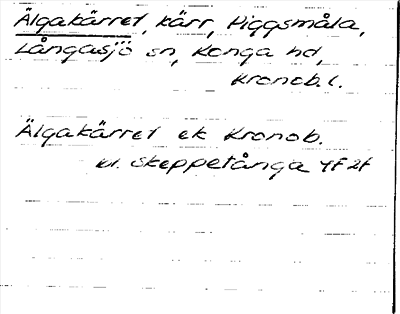 Älgakärret, kärr, Piggsmåla,
Långasjö sn, Konga hd,
Kronob. l.
Älgakärret ek Kronob.
bl. Skeppetånga 4F 2f